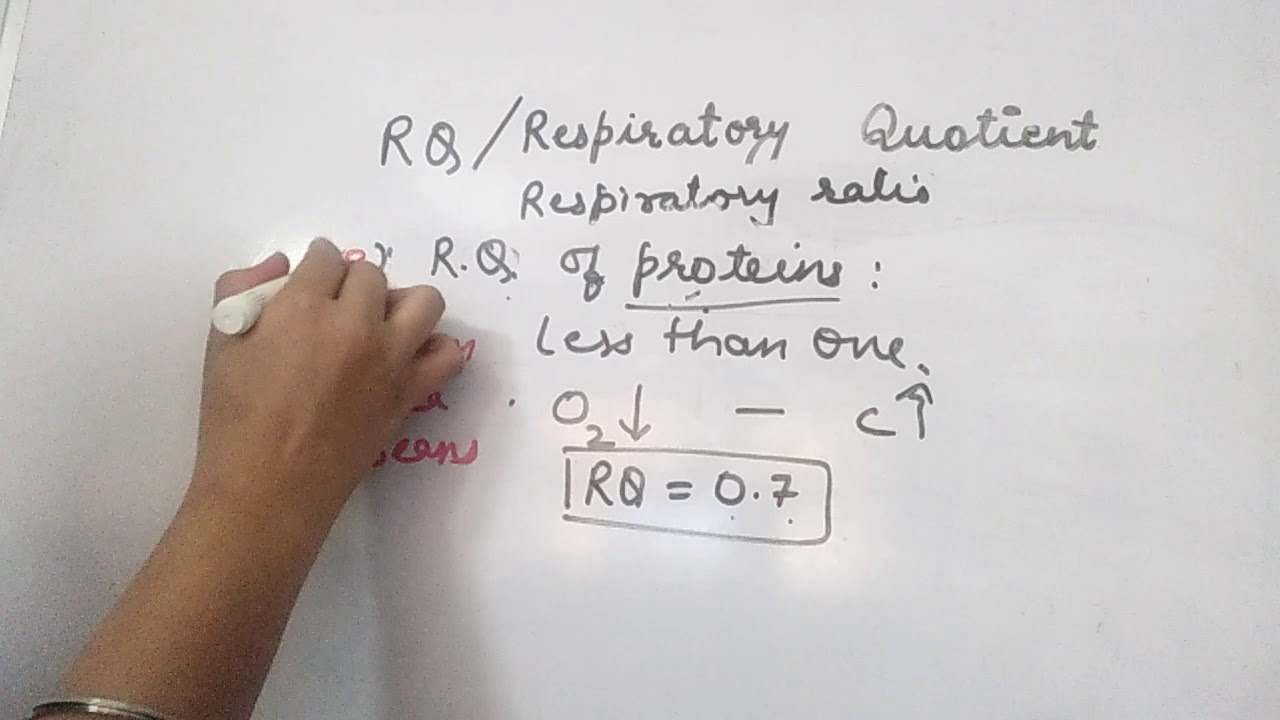 RQ / Respiratory Quotient
Respiratory ratio
R.Q. of proteins :
less than one.
O₂↓ — C↑
RQ = 0.7